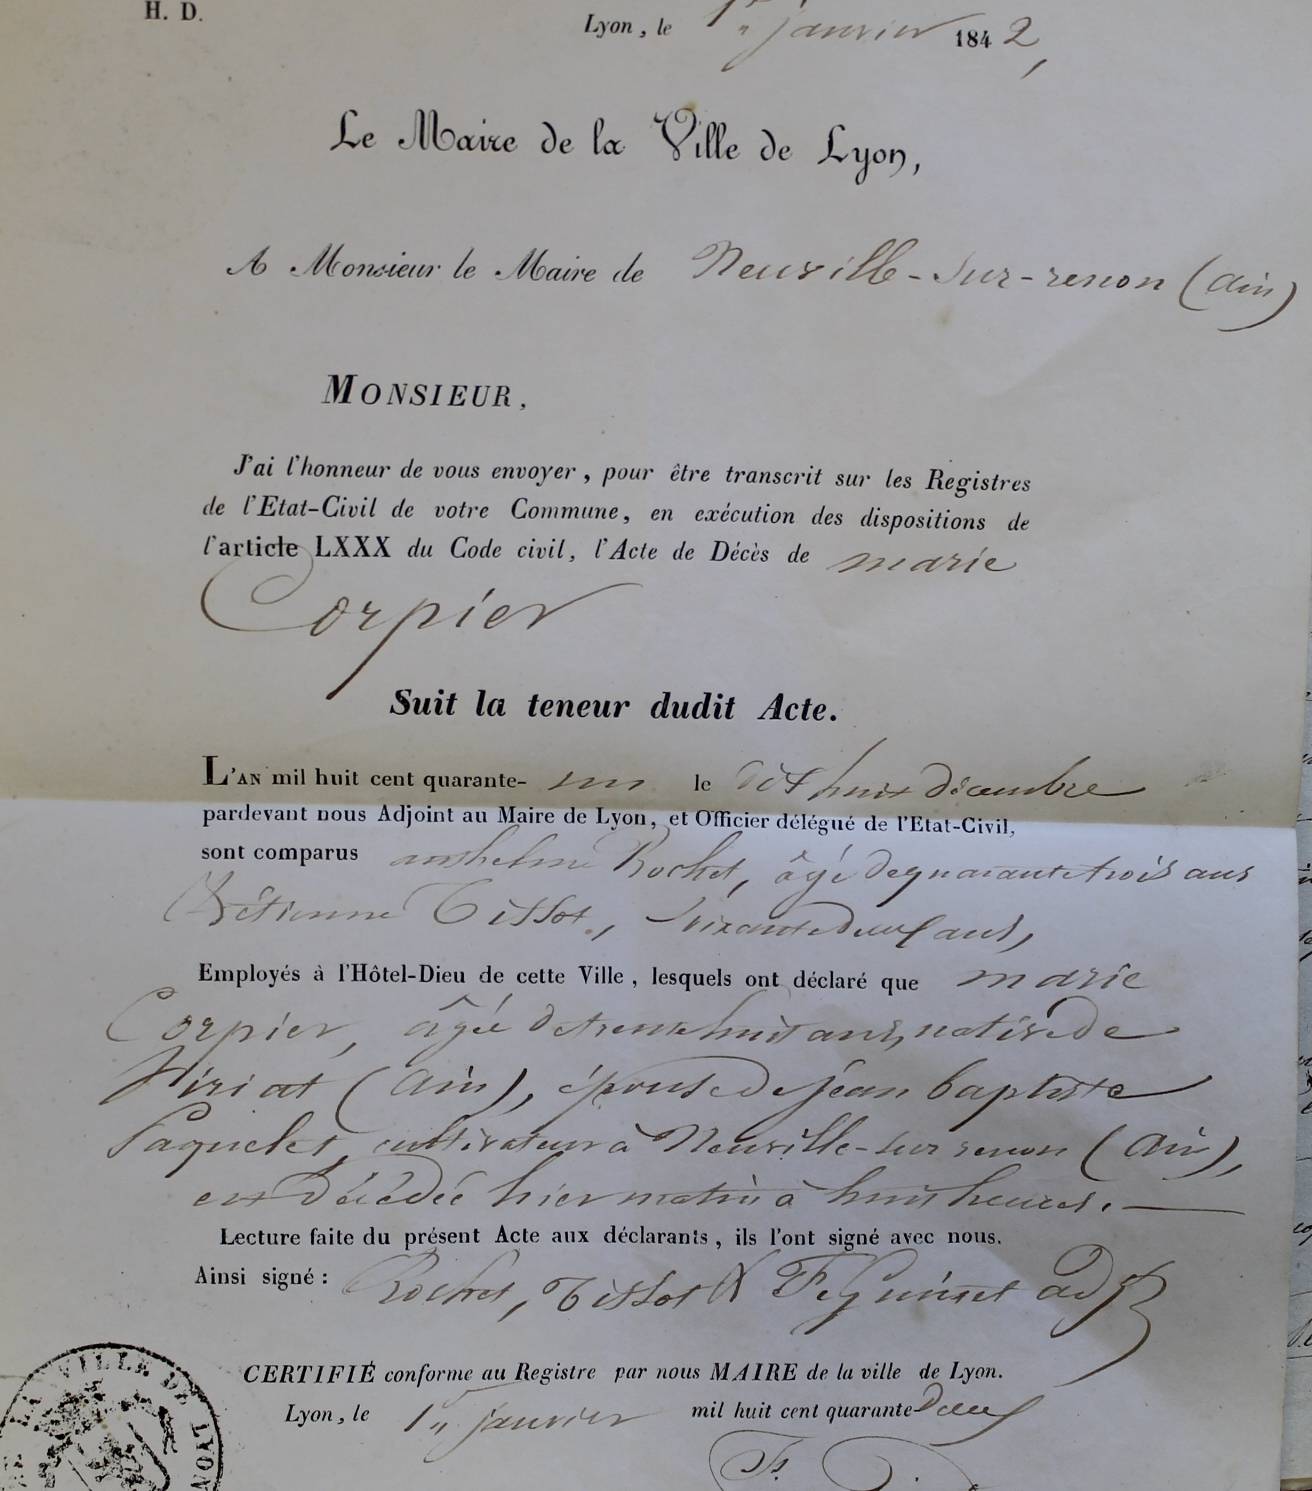 H. D.
Lyon, le 1er janvier 1842,
Le Maire de la Ville de Lyon,
A Monsieur le Maire de Neuville-sur-renon (ain)
MONSIEUR,
J'ai l'honneur de vous envoyer, pour être transcrit sur les Registres
de l'Etat-Civil de votre Commune, en exécution des dispositions de
l'article LXXX du Code civil, l'Acte de Décès de marie
Corpier
Suit la teneur dudit Acte.
L'AN mil huit cent quarante- un le dix huit décembre
pardevant nous Adjoint au Maire de Lyon, et Officier délégué de l'Etat-Civil,
sont comparus anthelme Rochet, âgé de quarante trois ans
& étienne Tissot, soixante deux ans,
Employés à l'Hôtel-Dieu de cette Ville, lesquels ont déclaré que marie
Corpier, âgée de trente huit ans, native de
Viriat (ain), épouse de jean baptiste
Paquelet, cultivateur à Neuville-sur renon (ain),
est décédée hier matin à huit heures.
Lecture faite du présent Acte aux déclarants, ils l'ont signé avec nous.
Ainsi signé : Rochet, Tissot & adjt
CERTIFIÉ conforme au Registre par nous MAIRE de la ville de Lyon.
Lyon, le 1er janvier mil huit cent quarante deux
LA VILLE DE LYON